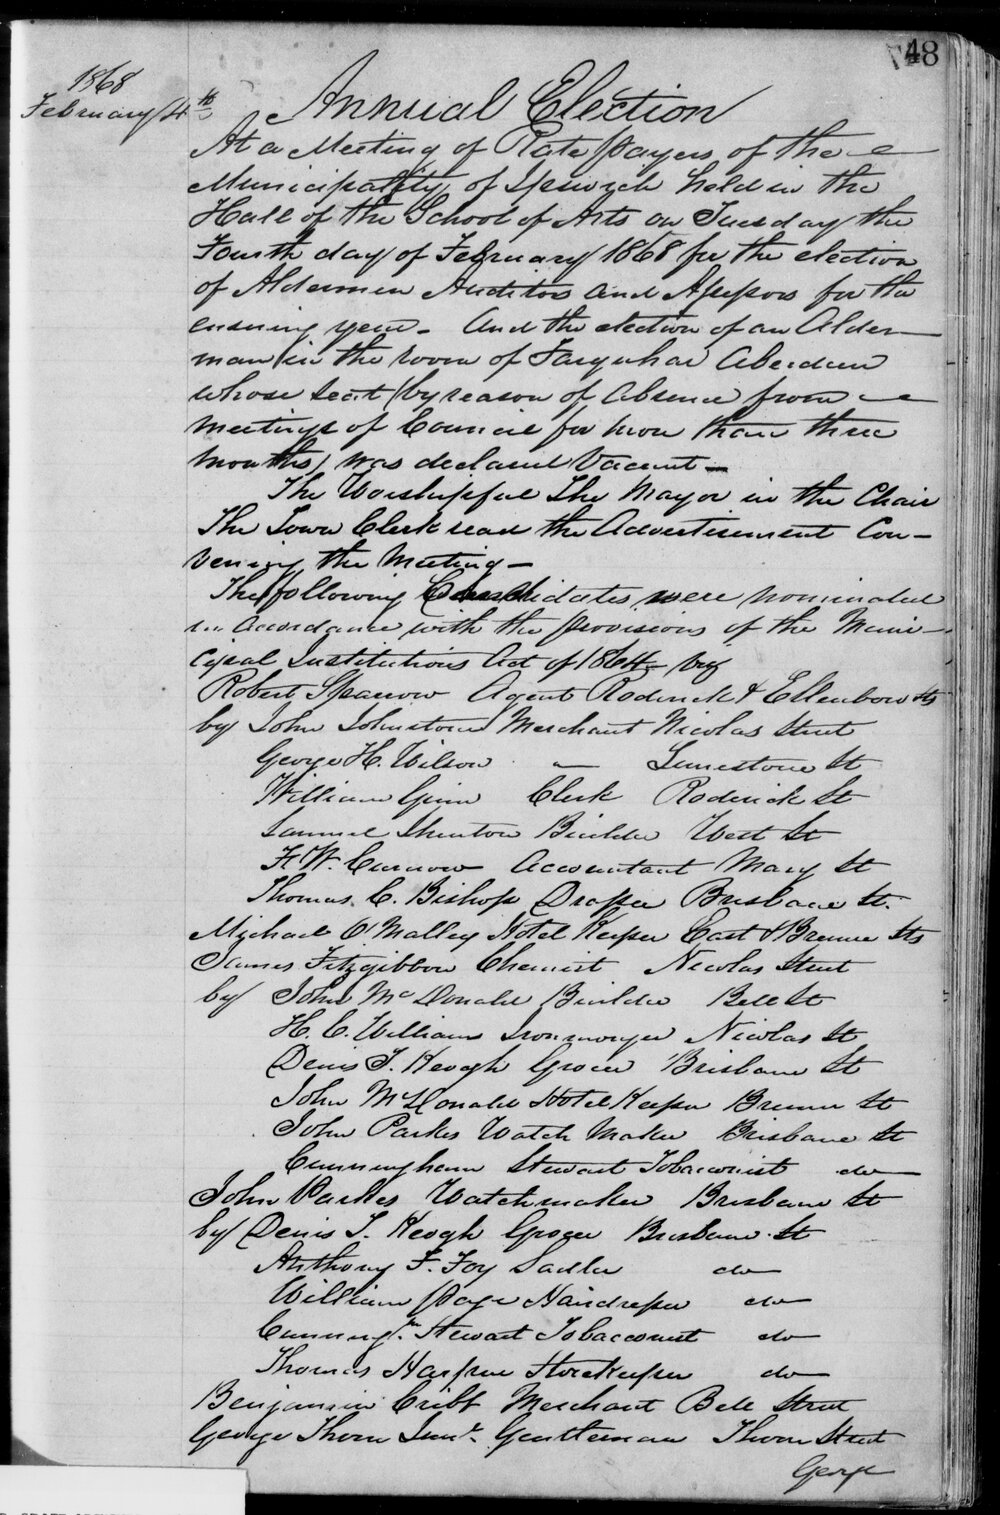 48
1868
February 4th
Annual Election
At a Meeting of Rate payers of the
Municipality of Ipswich held in the
Hall of the School of Arts on Tuesday the
Fourth day of February 1868 for the election
of Aldermen Auditors and Assessors for the
ensuing year - And the election of an Alder-
man in the room of Farquhar Aberdeen
whose seat (by reason of absence from
meetings of Council for more than three
months) was declared Vacant -
The Worshipful The Mayor in the Chair
The Town Clerk read the Advertisement Con-
vening the Meeting -
The following Candidates were nominated
in accordance with the provisions of the Muni-
cipal Institutions Act of 1864 - by
Robert Sparrow Agent Roderick & Ellenboro Sts
by John Johnstone Merchant Nicolas Street
George H. Wilson - Limestone St
William Ginn Clerk Roderick St
Samuel Shenton Builder West St
F. W. Curnow Accountant Mary St
Thomas C. Bishop Draper Brisbane St.
Michael O'Malley Hotel Keeper East & Bremer Sts
James Fitzgibbon Chemist Nicolas Street
by John McDonald Builder Bell St
H. C. Williams Ironmonger Nicolas St
Denis T. Keogh Grocer Brisbane St
John McDonald Hotel Keeper Bremer St
John Parkes Watch Maker Brisbane St
Cunningham Stewart Tobacconist do
John Parkes Watchmaker Brisbane St
by Denis T. Keogh Grocer Brisbane St
Anthony F. Foy Sadler do
William Page Hairdresser do
Cunningm Stewart Tobacconist do
Thomas Storekeeper do
Benjamin Cribb Merchant Bell Street
George Thorn Junr. Gentleman Thorn Street
George